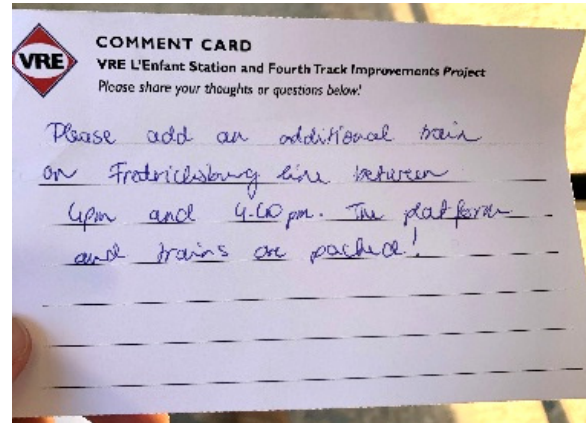 VRE
COMMENT CARD
VRE L'Enfant Station and Fourth Track Improvements Project
Please share your thoughts or questions below!
Please add an additional train
on Fredricksburg line between
4pm and 4:40 pm. The platform
and trains are packed!